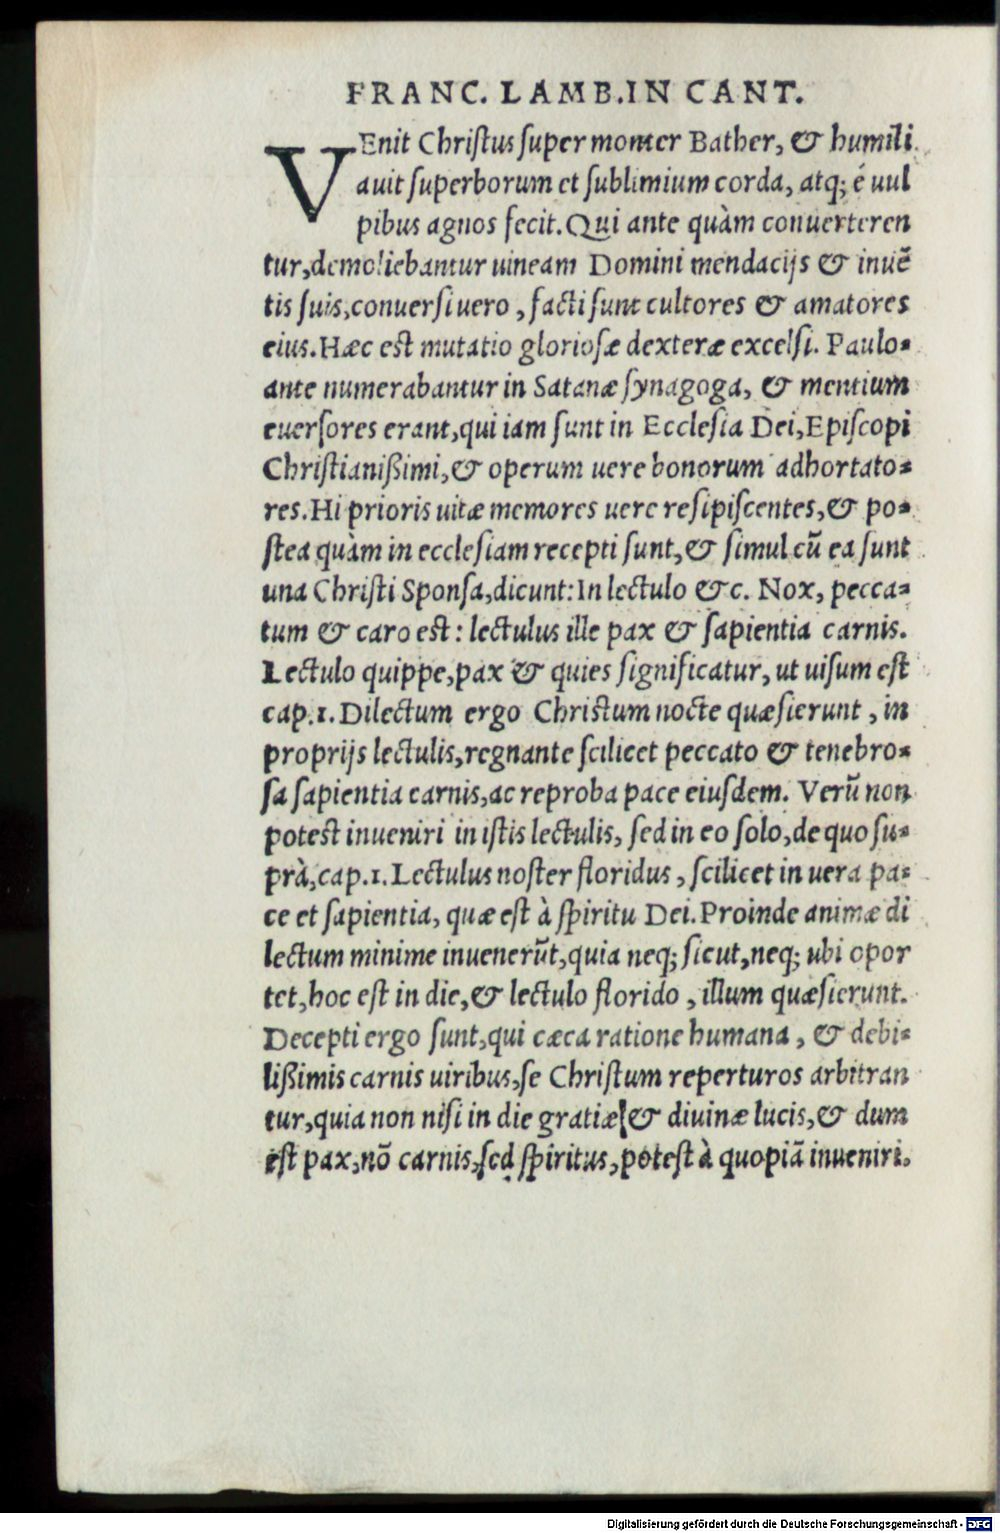 FRANC. LAMB. IN CANT.
VEnit Christus super montes Bather, & humili
auit superborum et sublimium corda, atq; é uul
pibus agnos fecit. Qui ante quàm conuerteren
tur, demoliebantur uineam Domini mendacijs & inuẽ
tis suis, conuersi uero, facti sunt cultores & amatores
eius. Hæc est mutatio gloriosæ dexteræ excelsi. Paulo-
ante numerabantur in Satanæ synagoga, & mentium
euersores erant, qui iam sunt in Ecclesia Dei, Episcopi
Christianißimi, & operum uere bonorum adhortato-
res. Hi prioris uitæ memores uere resipiscentes, & po-
stea quàm in ecclesiam recepti sunt, & simul cũ ea sunt
una Christi Sponsa, dicunt: In lectulo &c. Nox, pecca-
tum & caro est: lectulus ille pax & sapientia carnis.
Lectulo quippe, pax & quies significatur, ut uisum est
cap. 1. Dilectum ergo Christum nocte quæsierunt, in
proprijs lectulis, regnante scilicet peccato & tenebro-
sa sapientia carnis, ac reproba pace eiusdem. Verũ non
potest inueniri in istis lectulis, sed in eo solo, de quo su-
prà, cap. 1. Lectulus noster floridus, scilicet in uera pa-
ce et sapientia, quæ est à spiritu Dei. Proinde animæ di
lectum minime inuenerũt, quia neq; sicut, neq; ubi opor
tet, hoc est in die, & lectulo florido, illum quæsierunt.
Decepti ergo sunt, qui cæca ratione humana, & debi-
lißimis carnis uiribus, se Christum reperturos arbitran
tur, quia non nisi in die gratiæ & diuinæ lucis, & dum
est pax, nõ carnis, sed spiritus, potest à quopiã inueniri.
Digitalisierung gefördert durch die Deutsche Forschungsgemeinschaft - DFG